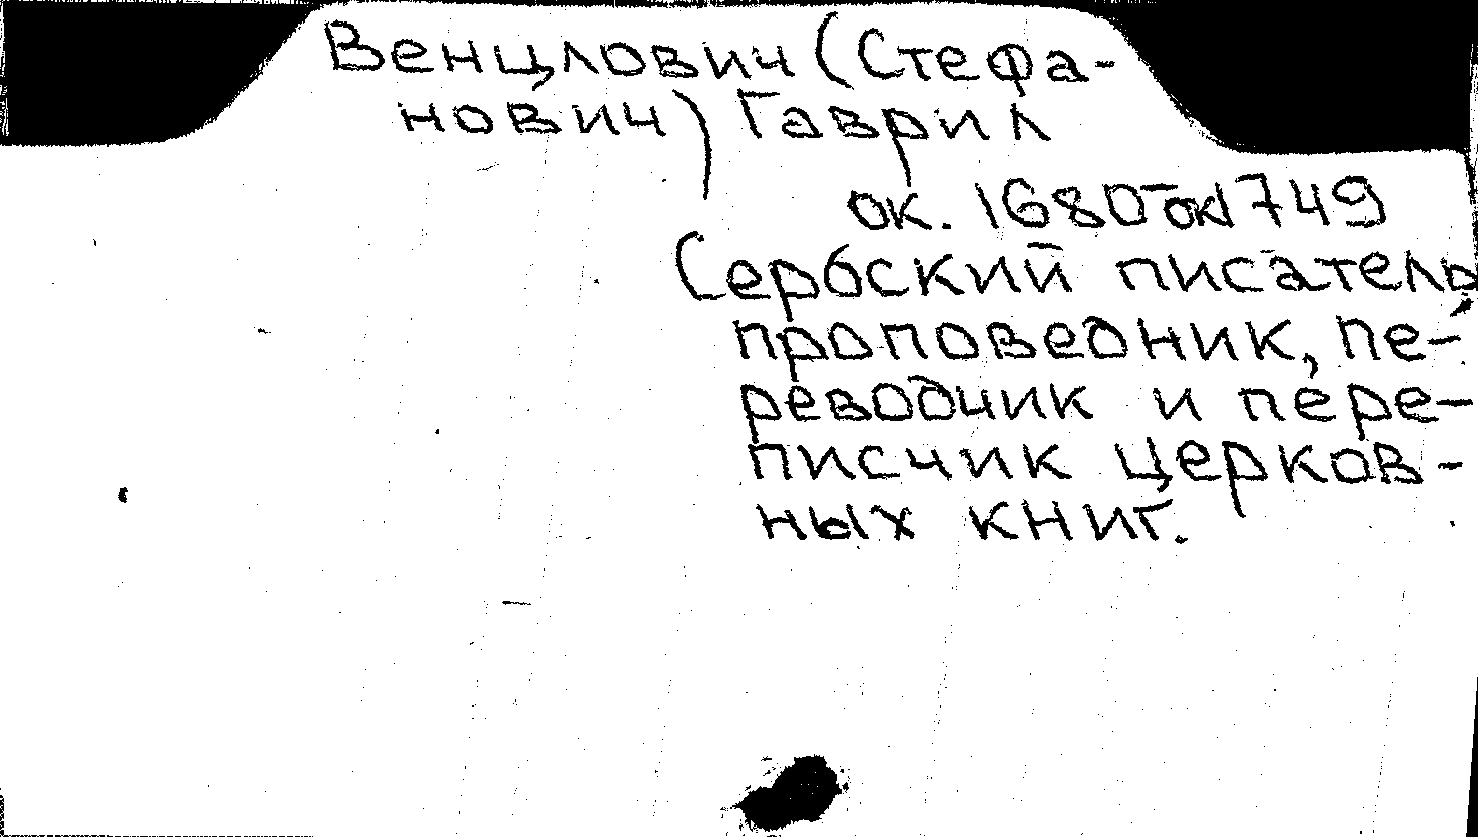 Венцлович (Стефа-
нович) Гаврил
ок. 1680-ок1749
Сербский писатель,
проповедник, пе-
реводчик и пере-
писчик церков-
ных книг.